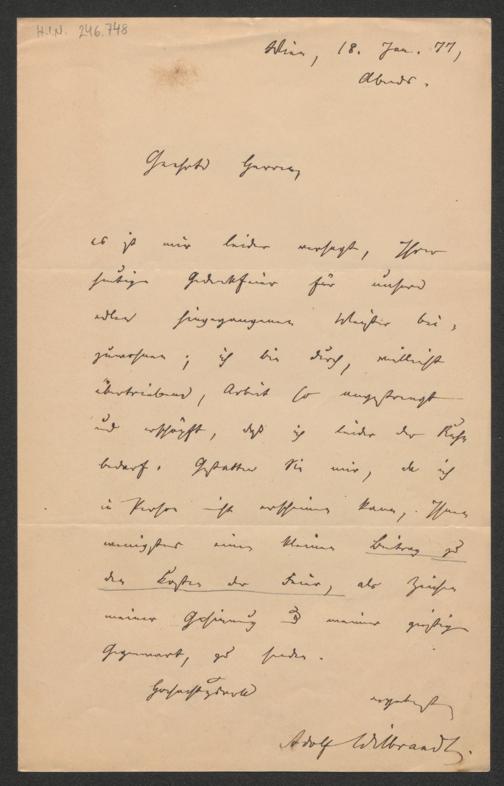 H.I.N. 246.748
Wien, 18. Jan. 77,
Abends.
Geehrte Herren,
es ist mir leider versagt, Ihrer
heutigen Gedenkfeier für unsern
edlen hingegangenen Meister bei=
zuwohnen; ich bin durch, vielleicht
übertriebene, Arbeit so angestrengt
und erschöpft, daß ich leider der Ruhe
bedarf. Gestatten Sie mir, da ich
in Person nicht erscheinen kann, Ihnen
wenigstens einen kleinen Beitrag zu
den Kosten der Feier, als Zeichen
meiner Gesinnung u meiner geistigen
Gegenwart, zu senden.
Hochachtungsvoll
ergebenst
Adolf Wilbrandt.